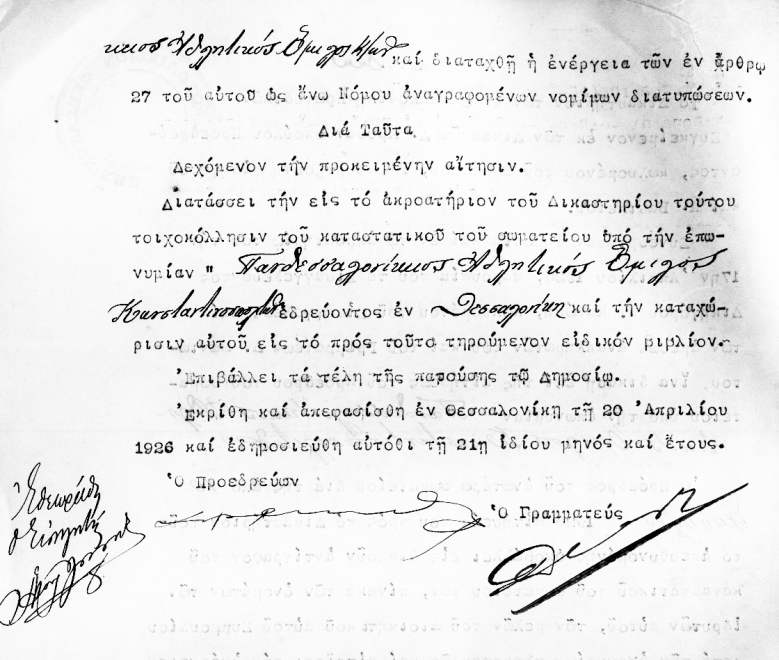 κικος Ἀθλητικός Ὅμιλος Κων καί διαταχθῇ ἡ ἐνέργεια τῶν ἐν ἄρθρῳ
27 τοῦ αὐτοῦ ὡς ἄνω Νόμου ἀναγραφομένων νομίμων διατυπώσεων.
Διά Ταῦτα
Δεχόμενον τήν προκειμένην αἴτησιν.
Διατάσσει τήν εἰς τό ἀκροατήριον τοῦ Δικαστηρίου τούτου
τοιχοκόλλησιν τοῦ καταστατικοῦ τοῦ σωματείου ὑπό τήν ἐπω-
νυμίαν " Πανθεσσαλονίκιος Ἀθλητικός Ὅμιλος
Κωνσταντινουπολιτῶν ἑδρεύοντος ἐν Θεσσαλονίκη καί τήν καταχώ-
ρισιν αὐτοῦ εἰς τό πρός τοῦτο τηρούμενον εἰδικόν βιβλίον.-
Ἐπιβάλλει τά τέλη τῆς παρούσης τῷ Δημοσίῳ.
Ἐκρίθη καί ἀπεφασίσθη ἐν Θεσσαλονίκῃ τῇ 20 Ἀπριλίου
1926 καί ἐδημοσιεύθη αὐτόθι τῇ 21ῃ ἰδίου μηνός καί ἔτους.
Ὁ Προεδρεύων
Ὁ Γραμματεύς
Ἐθεωρήθη
ὁ Εἰσηγητής